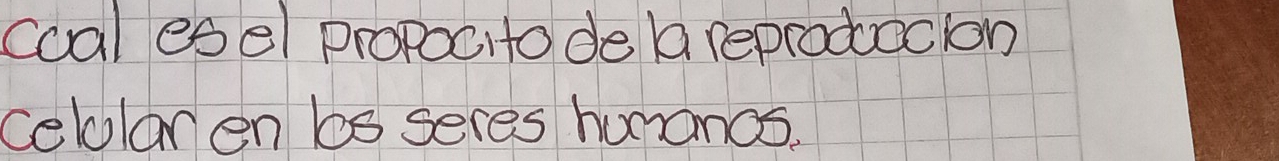 Cual es el propocito de la reproduccion
celular en los seres humanos.